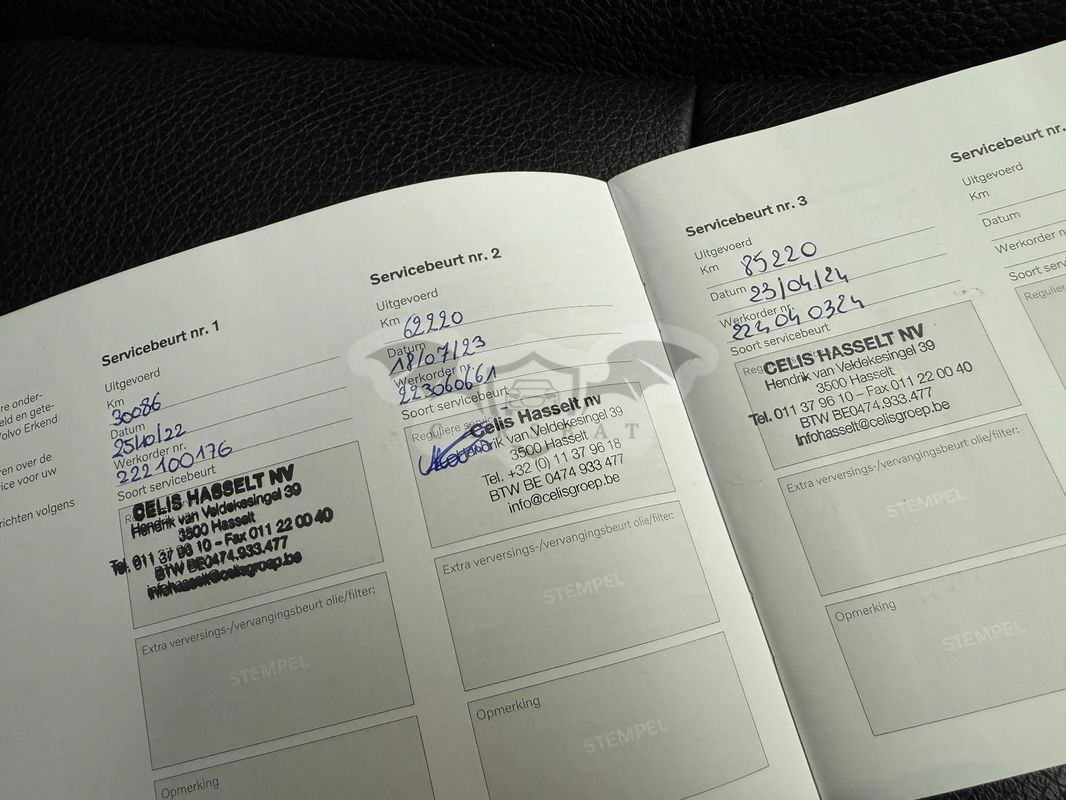 re onder-
eld en gete-
Volvo Erkend
en over de
ice voor uw
richten volgens
Servicebeurt nr. 1
Uitgevoerd
Km 30086
Datum 25/10/22
Werkorder nr. 222100176
Soort servicebeurt
CELIS HASSELT NV
Hendrik van Veldekesingel 39
3500 Hasselt
Tel. 011 37 96 10 – Fax 011 22 00 40
BTW BE0474.933.477
infohasselt@celisgroep.be
Extra verversings-/vervangingsbeurt olie/filter:
STEMPEL
Opmerking
Servicebeurt nr. 2
Uitgevoerd
Km 62220
Datum 18/07/23
Werkorder nr. 223060661
Soort servicebeurt
Reguliere
Celis Hasselt nv
Hendrik van Veldekesingel 39
3500 Hasselt
Tel. +32 (0) 11 37 96 18
BTW BE 0474 933 477
info@celisgroep.be
Extra verversings-/vervangingsbeurt olie/filter:
STEMPEL
Opmerking
STEMPEL
Servicebeurt nr. 3
Uitgevoerd
Km 85220
Datum 23/04/24
Werkorder nr. 224040324
Soort servicebeurt
CELIS HASSELT NV
Hendrik van Veldekesingel 39
3500 Hasselt
Tel. 011 37 96 10 – Fax 011 22 00 40
BTW BE0474.933.477
Infohasselt@celisgroep.be
Extra verversings-/vervangingsbeurt olie/filter:
STEMPEL
Opmerking
STEMPEL
Servicebeurt nr.
Uitgevoerd
Km
Datum
Werkorder n
Soort serv
Regulier